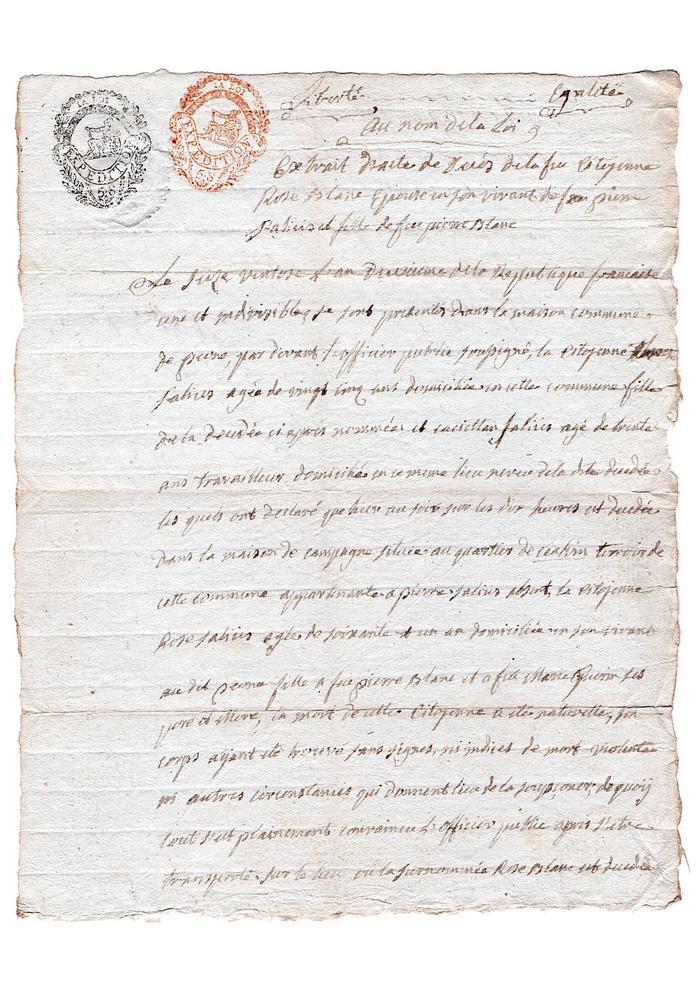 LA LOI
EXPEDITION
5.S
LA LOI
EXPEDITION
5.S
Liberté Egalité
au nom de la Loi
Extrait d'acte de de la feu Citoyenne
Rose Blanc Epouse en son vivant de feu pierre
Salivis et fille de feu pierre Blanc
Le Ventose L'an Deuxieme de la Republique francaise
une et indivisible, se sont presentés dans la maison commune
de par devant L'officier public soussigné, la Citoyenne
Salivis agée de vingt cinq ans domiciliée en cette commune fille
de la decedée ci apres nommée et Salivis agé de trente
ans travailleur domicilié en ce meme lieu neveu de la dite decedée
les quels ont declaré que hier au soir sur les dix heures est decedée
dans la maison de campagne située au quartier de terroir de
cette commune appartenante a pierre Salivis absent, la Citoyenne
Rose Salivis agée de soixante et un an domiciliée en son vivant
au dit fille a feu pierre Blanc et a feue Marie ses
pere et Mere, la mort de cette Citoyenne a eté naturelle, son
corps ayant eté trouvé sans signes, ni indices de mort violente
ni autres circonstances qui donnent lieu de la soupconer, de quoy
tout s'est plainement convaincu L'officier public apres s'etre
transporté sur le lieu ou la surnommée Rose Blanc est decedée